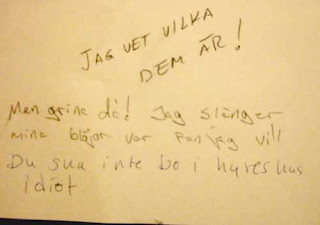 JAG VET VILKA
DEM ÄR!
Men grina då! Jag slänger
mina blöjor var fan jag vill
Du sua inte bo i hyreshus
idiot.